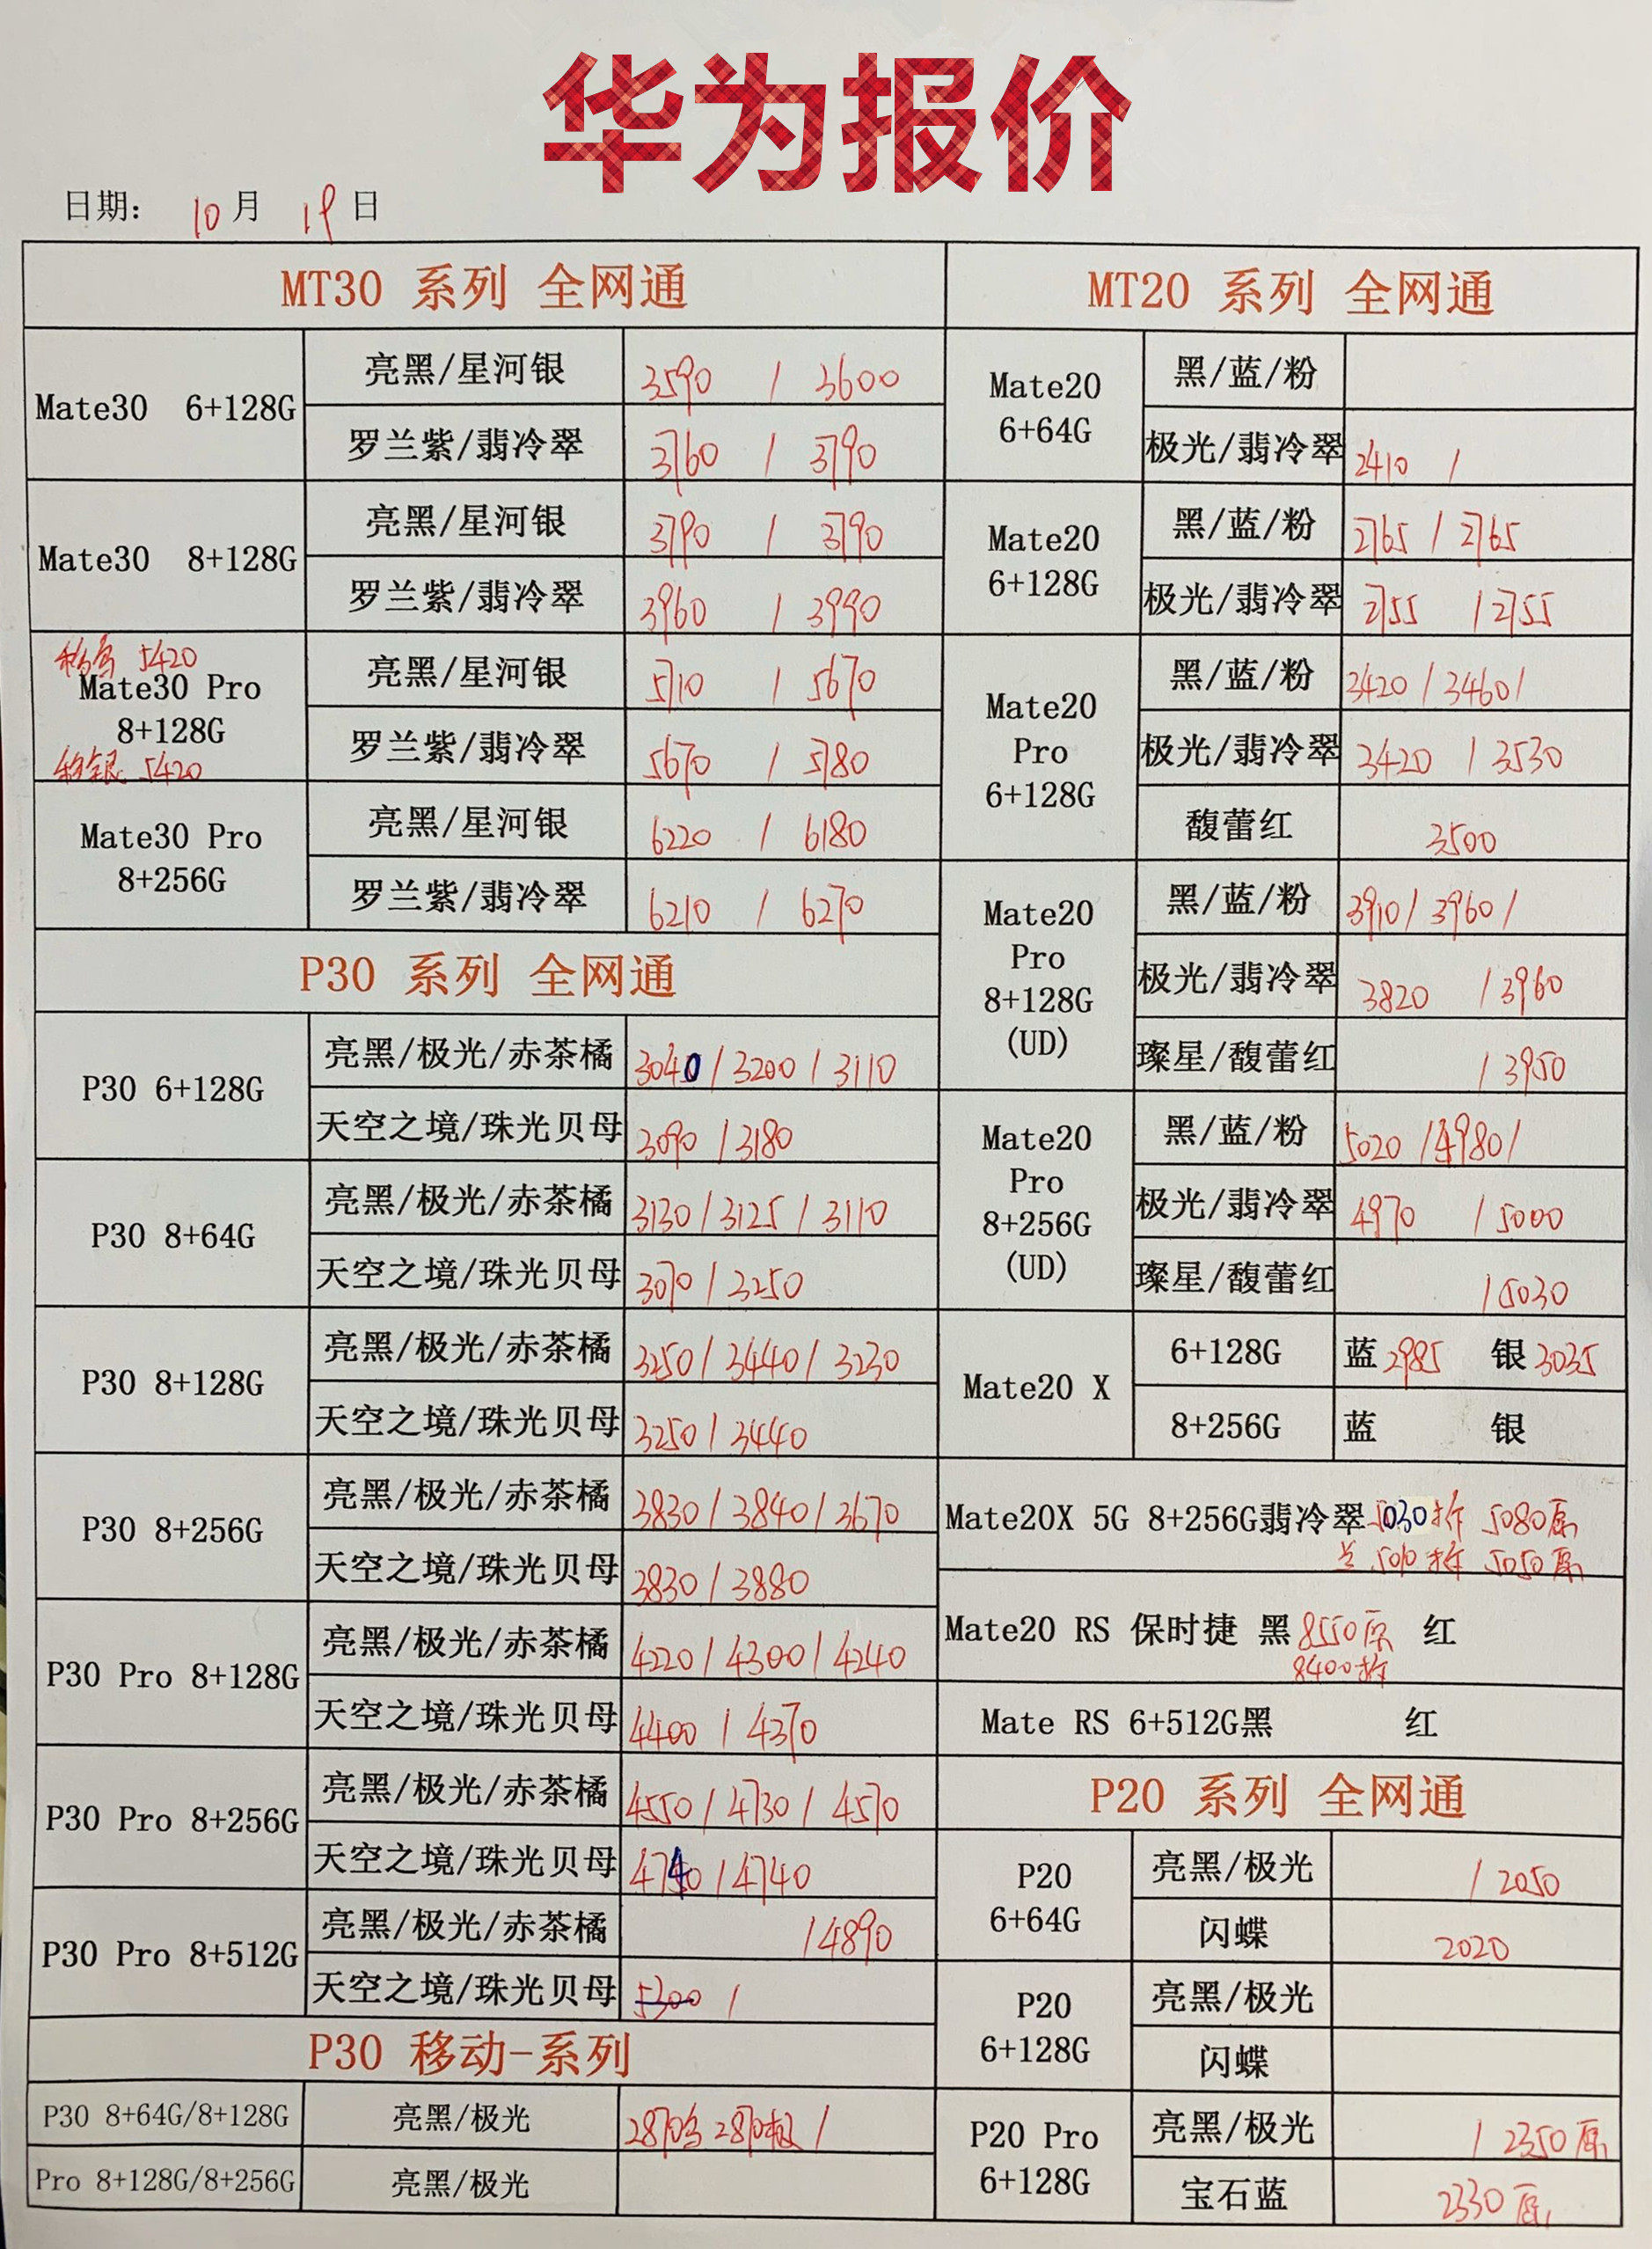 华为报价
日期: 10月 19日
MT30 系列 全网通
Mate30 6+128G
亮黑/星河银 3590 / 3600
罗兰紫/翡冷翠 3760 / 3790
Mate30 8+128G
亮黑/星河银 3790 / 3790
罗兰紫/翡冷翠 3960 / 3990
5420
Mate30 Pro
8+128G
5420
亮黑/星河银 5710 / 5670
罗兰紫/翡冷翠 5670 / 5780
Mate30 Pro
8+256G
亮黑/星河银 6220 / 6180
罗兰紫/翡冷翠 6210 / 6270
P30 系列 全网通
P30 6+128G
亮黑/极光/赤茶橘 3040 / 3200 / 3110
天空之境/珠光贝母 3090 / 3180
P30 8+64G
亮黑/极光/赤茶橘 3130 / 3125 / 3110
天空之境/珠光贝母 3070 / 3250
P30 8+128G
亮黑/极光/赤茶橘 3250 / 3440 / 3230
天空之境/珠光贝母 3250 / 3440
P30 8+256G
亮黑/极光/赤茶橘 3830 / 3840 / 3670
天空之境/珠光贝母 3830 / 3880
P30 Pro 8+128G
亮黑/极光/赤茶橘 4220 / 4300 / 4240
天空之境/珠光贝母 4400 / 4370
P30 Pro 8+256G
亮黑/极光/赤茶橘 4550 / 4730 / 4570
天空之境/珠光贝母 4740 / 4740
P30 Pro 8+512G
亮黑/极光/赤茶橘 / 4890
天空之境/珠光贝母 5300 /
P30 移动-系列
P30 8+64G/8+128G 亮黑/极光 2870 2870极 /
Pro 8+128G/8+256G 亮黑/极光
MT20 系列 全网通
Mate20
6+64G
黑/蓝/粉
极光/翡冷翠 2410 /
Mate20
6+128G
黑/蓝/粉 2765 / 2765
极光/翡冷翠 2755 / 2755
Mate20
Pro
6+128G
黑/蓝/粉 3420 / 3460 /
极光/翡冷翠 3420 / 3530
馥蕾红 3500
Mate20
Pro
8+128G
(UD)
黑/蓝/粉 3910 / 3960 /
极光/翡冷翠 3820 / 3960
璨星/馥蕾红 / 3950
Mate20
Pro
8+256G
(UD)
黑/蓝/粉 5020 / 4980 /
极光/翡冷翠 4970 / 5000
璨星/馥蕾红 / 5030
Mate20 X
6+128G 蓝 2985 银 3035
8+256G 蓝 银
Mate20X 5G 8+256G翡冷翠 5030拆 5080原
5010拆 5050原
Mate20 RS 保时捷 黑 8550原 红
8400拆
Mate RS 6+512G黑 红
P20 系列 全网通
P20
6+64G
亮黑/极光 / 2050
闪蝶 2020
P20
6+128G
亮黑/极光
闪蝶
P20 Pro
6+128G
亮黑/极光 / 2350原
宝石蓝 2330原